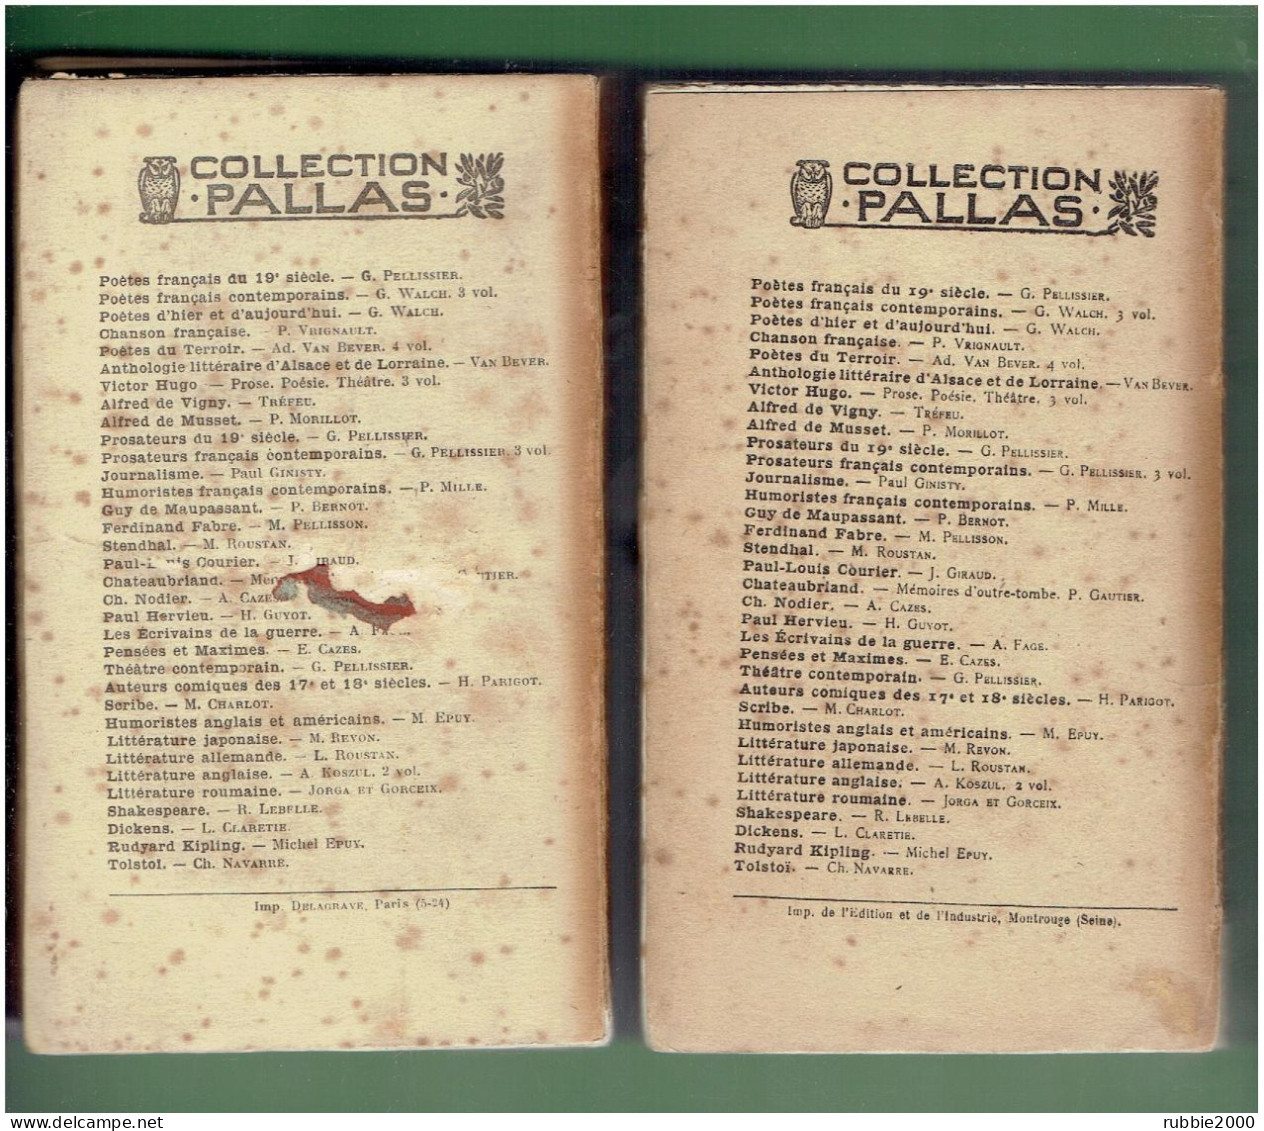 COLLECTION
· PALLAS ·
Poètes français du 19e siècle. — G. PELLISSIER.
Poètes français contemporains. — G. WALCH. 3 vol.
Poètes d'hier et d'aujourd'hui. — G. WALCH.
Chanson française. — P. VRIGNAULT.
Poètes du Terroir. — Ad. VAN BEVER. 4 vol.
Anthologie littéraire d'Alsace et de Lorraine. — VAN BEVER.
Victor Hugo — Prose. Poésie. Théâtre. 3 vol.
Alfred de Vigny. — TRÉFEU.
Alfred de Musset. — P. MORILLOT.
Prosateurs du 19e siècle. — G. PELLISSIER.
Prosateurs français contemporains. — G. PELLISSIER. 3 vol.
Journalisme. — Paul GINISTY.
Humoristes français contemporains. — P. MILLE.
Guy de Maupassant. — P. BERNOT.
Ferdinand Fabre. — M. PELLISSON.
Stendhal. — M. ROUSTAN.
Paul-L is Courier. — J. IRAUD.
Chateaubriand. — Mé TIER.
Ch. Nodier. — A. CAZES
Paul Hervieu. — H. GUYOT.
Les Écrivains de la guerre. — A. F
Pensées et Maximes. — E. CAZES.
Théâtre contemporain. — G. PELLISSIER.
Auteurs comiques des 17e et 18e siècles. — H. PARIGOT.
Scribe. — M. CHARLOT.
Humoristes anglais et américains. — M. EPUY.
Littérature japonaise. — M. REVON.
Littérature allemande. — L. ROUSTAN.
Littérature anglaise. — A. KOSZUL. 2 vol.
Littérature roumaine. — JORGA ET GORCEIX.
Shakespeare. — R. LEBELLE.
Dickens. — L. CLARETIE.
Rudyard Kipling. — Michel EPUY.
Tolstoï. — Ch. NAVARRE.
Imp. DELAGRAVE, Paris (5-24)
COLLECTION
· PALLAS ·
Poètes français du 19e siècle. — G. PELLISSIER.
Poètes français contemporains. — G. WALCH. 3 vol.
Poètes d'hier et d'aujourd'hui. — G. WALCH.
Chanson française. — P. VRIGNAULT.
Poètes du Terroir. — Ad. VAN BEVER. 4 vol.
Anthologie littéraire d'Alsace et de Lorraine. — VAN BEVER.
Victor Hugo. — Prose. Poésie. Théâtre. 3 vol.
Alfred de Vigny. — TRÉFEU.
Alfred de Musset. — P. MORILLOT.
Prosateurs du 19e siècle. — G. PELLISSIER.
Prosateurs français contemporains. — G. PELLISSIER. 3 vol.
Journalisme. — Paul GINISTY.
Humoristes français contemporains. — P. MILLE.
Guy de Maupassant. — P. BERNOT.
Ferdinand Fabre. — M. PELLISSON.
Stendhal. — M. ROUSTAN.
Paul-Louis Courier. — J. GIRAUD.
Chateaubriand. — Mémoires d'outre-tombe. P. GAUTIER.
Ch. Nodier. — A. CAZES.
Paul Hervieu. — H. GUYOT.
Les Écrivains de la guerre. — A. FAGE.
Pensées et Maximes. — E. CAZES.
Théâtre contemporain. — G. PELLISSIER.
Auteurs comiques des 17e et 18e siècles. — H. PARIGOT.
Scribe. — M. CHARLOT.
Humoristes anglais et américains. — M. EPUY.
Littérature japonaise. — M. REVON.
Littérature allemande. — L. ROUSTAN.
Littérature anglaise. — A. KOSZUL. 2 vol.
Littérature roumaine. — JORGA ET GORCEIX.
Shakespeare. — R. LEBELLE.
Dickens. — L. CLARETIE.
Rudyard Kipling. — Michel EPUY.
Tolstoï. — Ch. NAVARRE.
Imp. de l'Edition et de l'Industrie, Montrouge (Seine).
rubbie2000